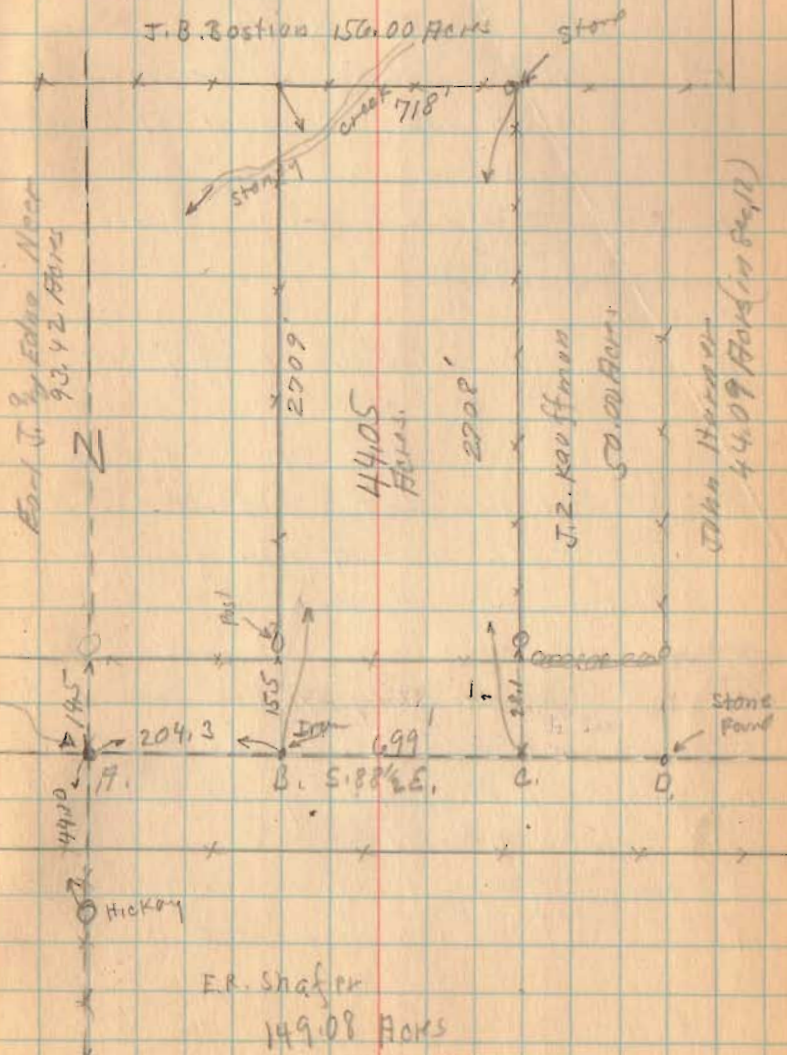 J.B. Bostion 156.00 Acres
Stone
718'
Stoney Creek
Earl J. & Edna Neer
93.42 Acres
N
2709'
44.05
Acres.
2708'
J.Z. Kauffman
50.00 Acres
John Harner
44.09 Acres (in Sec, 12)
Post
19.5
15.5
22.1
204.3
Iron
699'
Stone
Found
A.
B.
S. 88½ E.
C.
D.
44.0
Hickory
E.R. Shafer
149.08 Acres